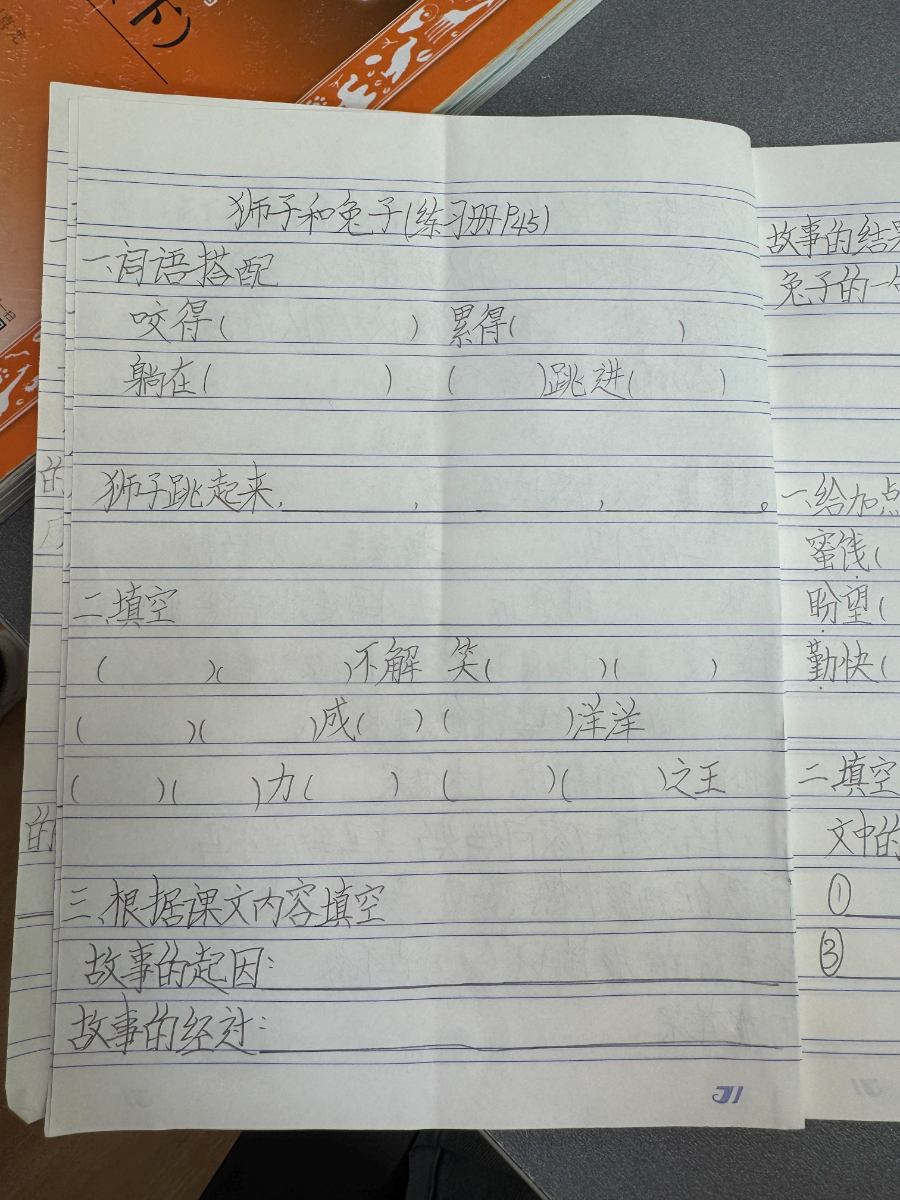 狮子和兔子(练习册P45)
一、词语搭配
咬得( ) 累得( )
躺在( ) ( )跳进( )
狮子跳起来,______,______,______。
二、填空
( )( )不解 笑( )( )
( )( )成( ) ( )洋洋
( )( )力( ) ( )( )之王
三、根据课文内容填空
故事的起因:______
故事的经过:______
故事的结果
兔子的一
一、给加点
蜜饯(
盼望(
勤快(
二、填空
文中的
①
③
的
的